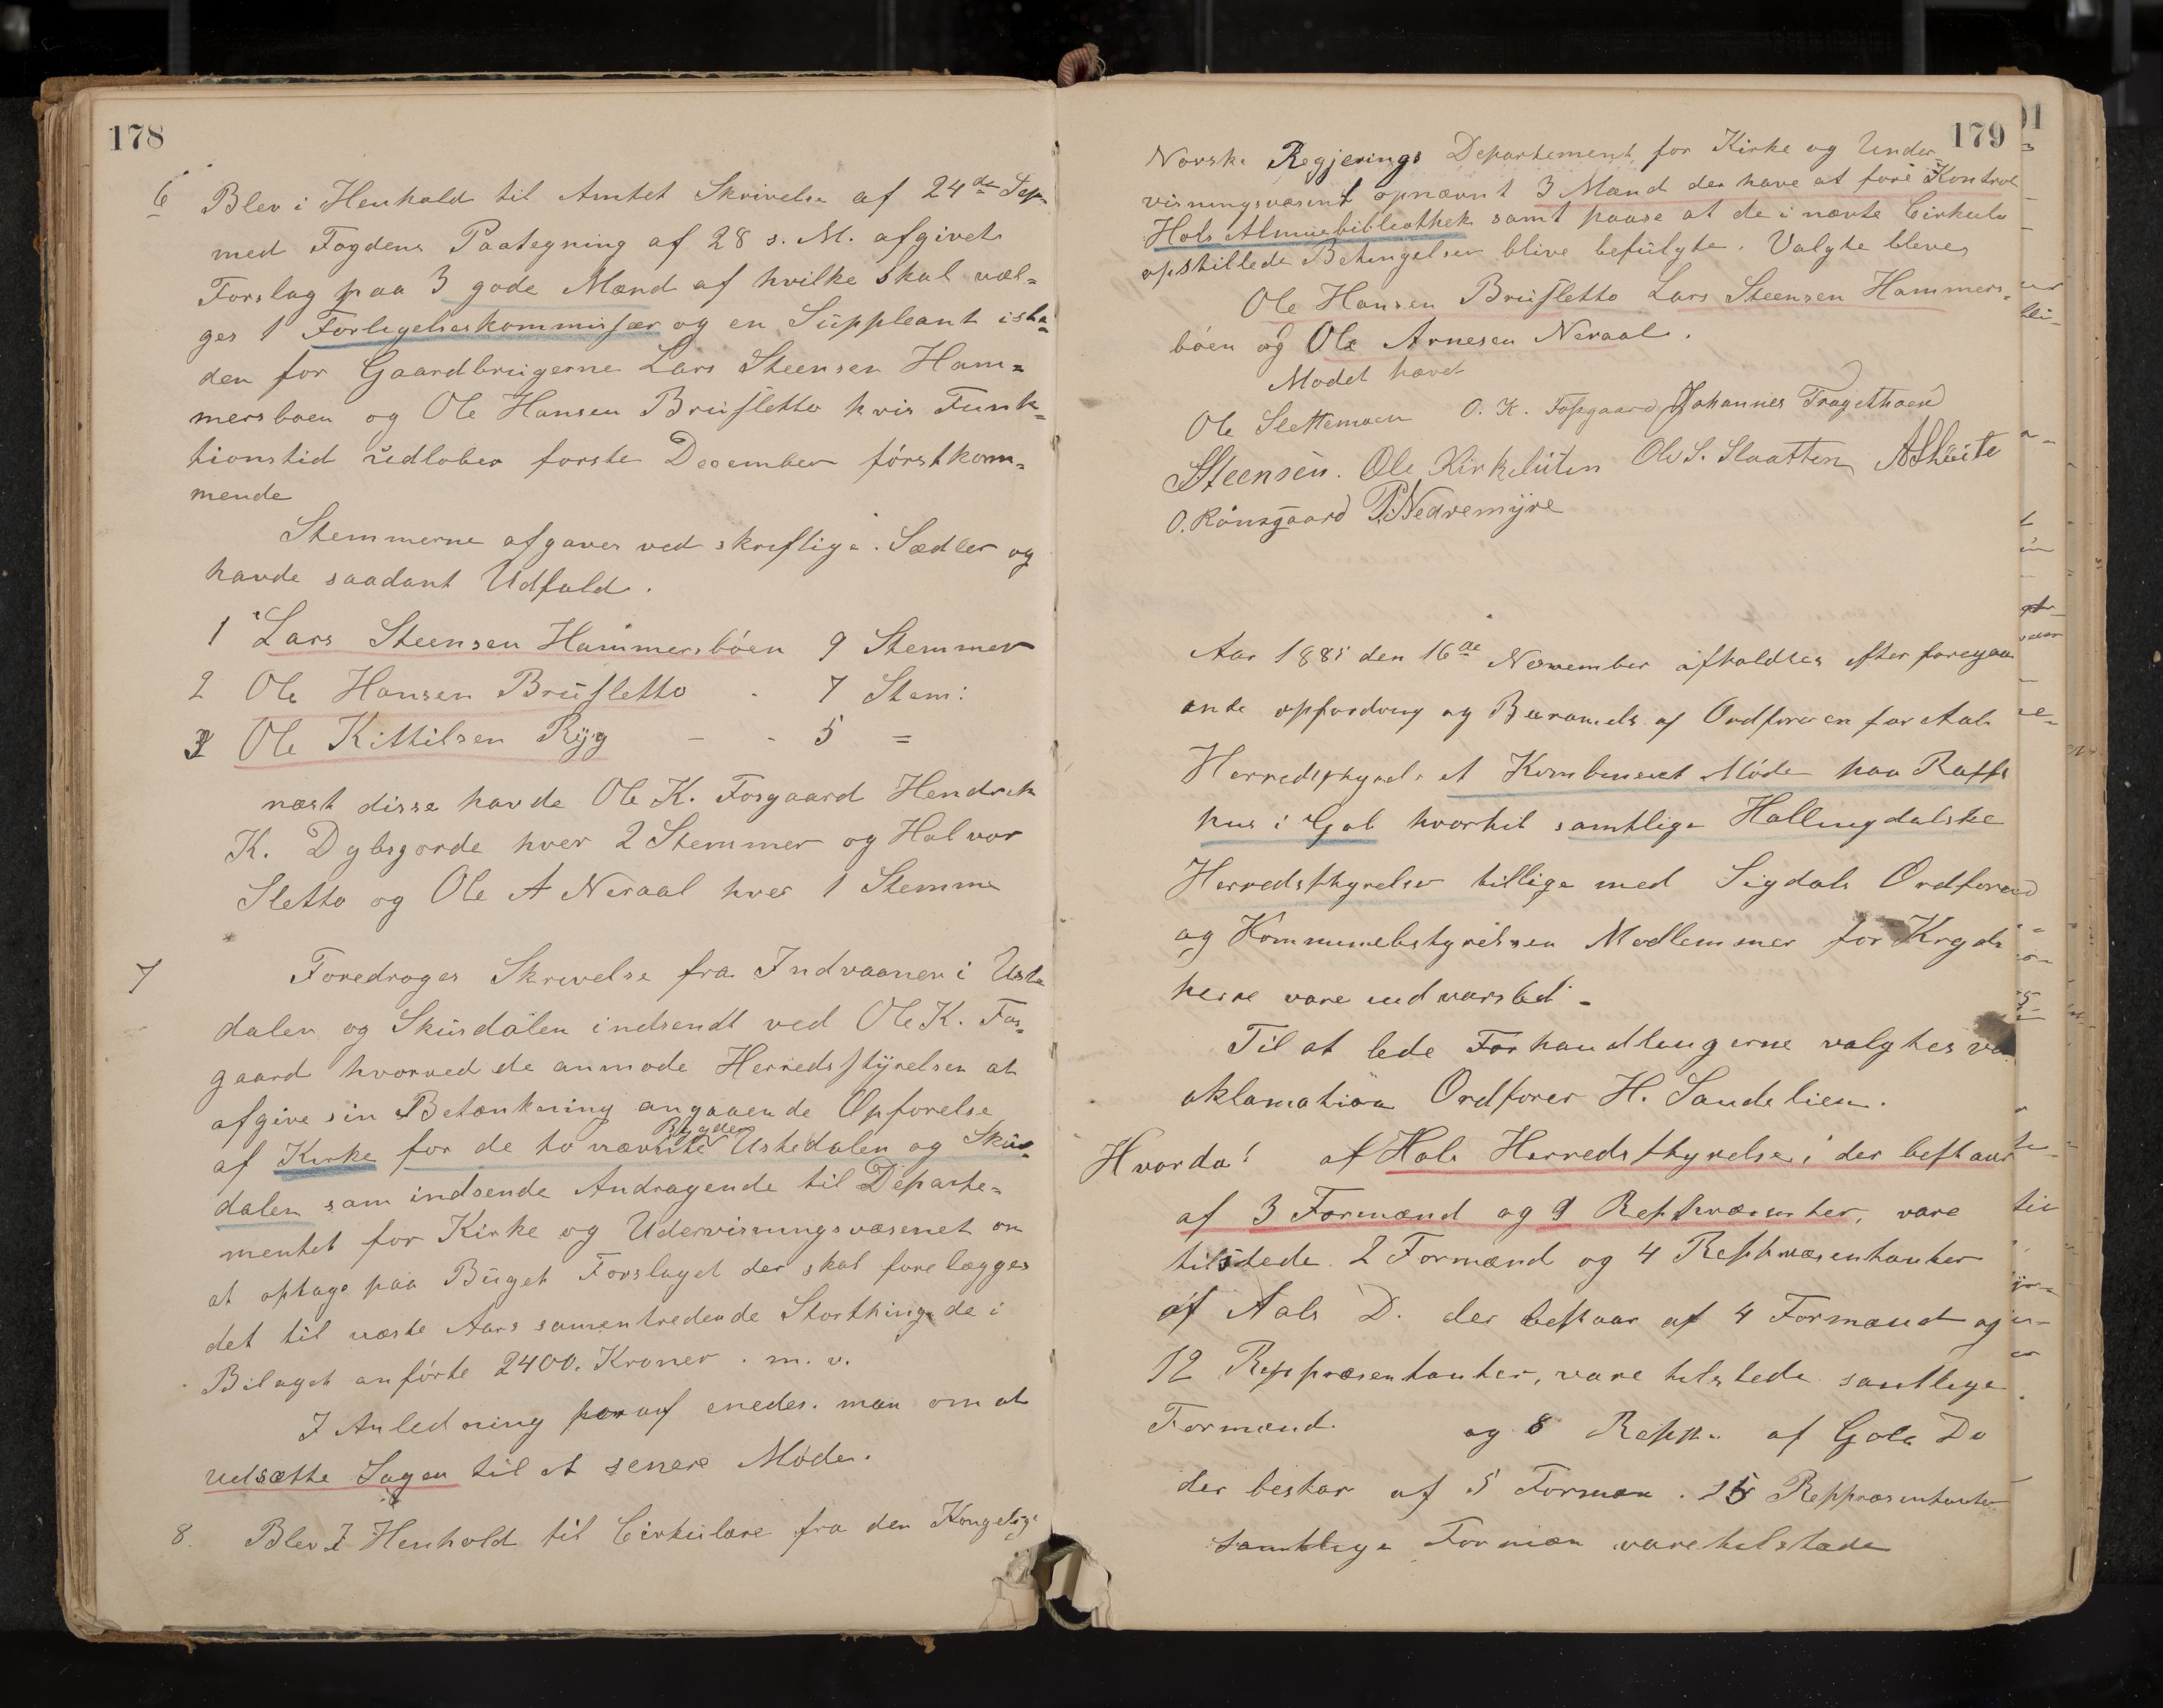 178
6 Blev i Henhold til Amtet Skrivelse af 24de Sep
med Fogdens Paategning af 28 s. M. afgivet
Forslag paa 3 gode Mænd af hvilke skal væl-
ges 1 Forligelseskommissær og en Suppleant iste-
den for Gaardbrugerne Lars Steensen Ham-
mersboen og Ole Hansen Brusletto hvis Funk-
tionstid udløber forste December førstkom-
mende
Stemmerne afgaves ved skriftlige Sædler og
havde saadant Udfald.
1 Lars Steensen Hammersbøen 9 Stemmer
2 Ole Hansen Brusletto - 7 Stem:
3 Ole Kittilsen Ryg - - 5 =
næst disse havde Ole K. Fosgaard Hendrik
K. Dybsgorde hver 2 Stemmer og Halvor
Sletto og Ole A Neraal hver 1 Stemme
7 Foredroges Skrivelse fra Indvaaner i Uste
dalen og Skusdalen indsendt ved Ole K. Fos-
gaard hvorved de anmode Herredsstyrelsen at
afgive sin Betænkning angaaende Opførelse
af Kirke for de to nævnte Bygder Ustedalen og Skus-
dalen som indsende Andragende til Departe-
mentet for Kirke og Udervisningsvæsenet om
at optage paa Büget Forslaget der skal forelægges
det til næste Aars samentredende Storthing de i
Bilaget anførte 2400. Kroner . m. v.
I Anledning heraf enedes man om at
udsætte Sagen til et senere Møde.
8. Blev I Henhold til Cirkulære fra den Kongelige
179
Norske Regjerings Departement for Kirke og Under-
visningsvæsent opnævnt 3 Mænd der have at føre Kontrol
Hols Almuebibliothek samt paase at de i nævte Cirkulæ
opstillede Betingelser blive befulgte. Valgte bleves
Ole Hansen Brusletto Lars Steensen Hammers-
bøen og Ole Arnesen Neraal.
Mødet hævet
Ole Slettemoen O. K. Fosgaard Johannes Tragethoen
Steensen. Ole Kirkeluten Ole S. Slaatten
O. Rønsgaard P. Nedremyre
Aar 1885 den 16de November afholdtes efter foregaa
ende opfordring og Beramels af Ordføreren for Aals
Herredsstyrels et Kombineret Møde paa Rafts
hus i Gol hvortil samtlige Hallingdalske
Herredsstyrelser tillige med Sigdals Ordfører
og Kommunebestyrelsen Medlemmer for Krøds
herre vare indvarsled -
Til at lede Forhandlingerne valgtes ved
aklamation Ordfører H. Sandelien.
Hvorda! af Hols Herredsthyrelse, der bestaar
af 3 Formænd og 9 Repræsenter, vare
tilstede 2 Formænd og 4 Repræsentanter
af Aals D. der bestaar af 4 Formænd og
12 Reppræsentanter, vare tilstede samtlige
Formænd. og 8 Repp. af Gols Do
der bestar af 5 Formæn . 15 Reppræsentanter
samtlige Formæn vare tilstæde